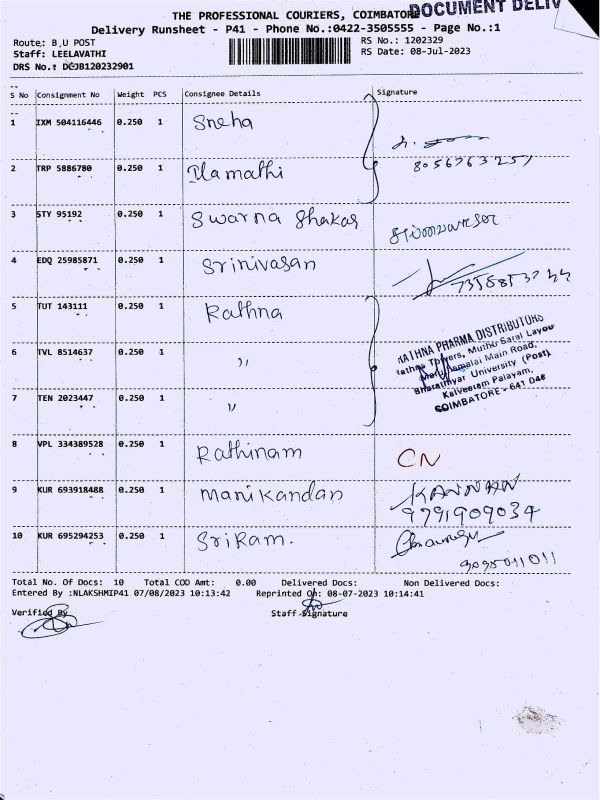 DOCUMENT DELIV
THE PROFESSIONAL COURIERS, COIMBATORE
Delivery Runsheet - P41 - Phone No.:0422-3505555 - Page No.:1
Route: B,U POST
RS No.: 1202329
Staff: LEELAVATHI
RS Date: 08-Jul-2023
DRS No.:
S No Consignment No Weight PCS Consignee Details Signature
1 IXM 504116446 0.250 1 Sneha
2 TRP 5886780 0.250 1 Ilamathi 8056763257
3 STY 95192 0.250 1 Swarna Shakar
4 EDQ 25985871 0.250 1 Srinivasan
5 TUT 143111 0.250 1 Rathna
6 TVL 8514637 0.250 1 ,,
7 TEN 2023447 0.250 1 ,,
RATHNA PHARMA DISTRIBUTORS
Rathna Towers, Muthu Sarai Layou
Main Road,
Bharathiyar University (Post),
Kalveeram Palayam,
COIMBATORE - 641 046
8 VPL 334389528 0.250 1 Rathinam CN
9 KUR 693918488 0.250 1 Manikandan KANNAN
9791909034
10 KUR 695294253 0.250 1 SriRam.
9095011011
Total No. Of Docs: 10 Total COD Amt: 0.00 Delivered Docs: Non Delivered Docs:
Entered By :NLAKSHMIP41 07/08/2023 10:13:42 Reprinted On: 08-07-2023 10:14:41
Verified By Staff Signature